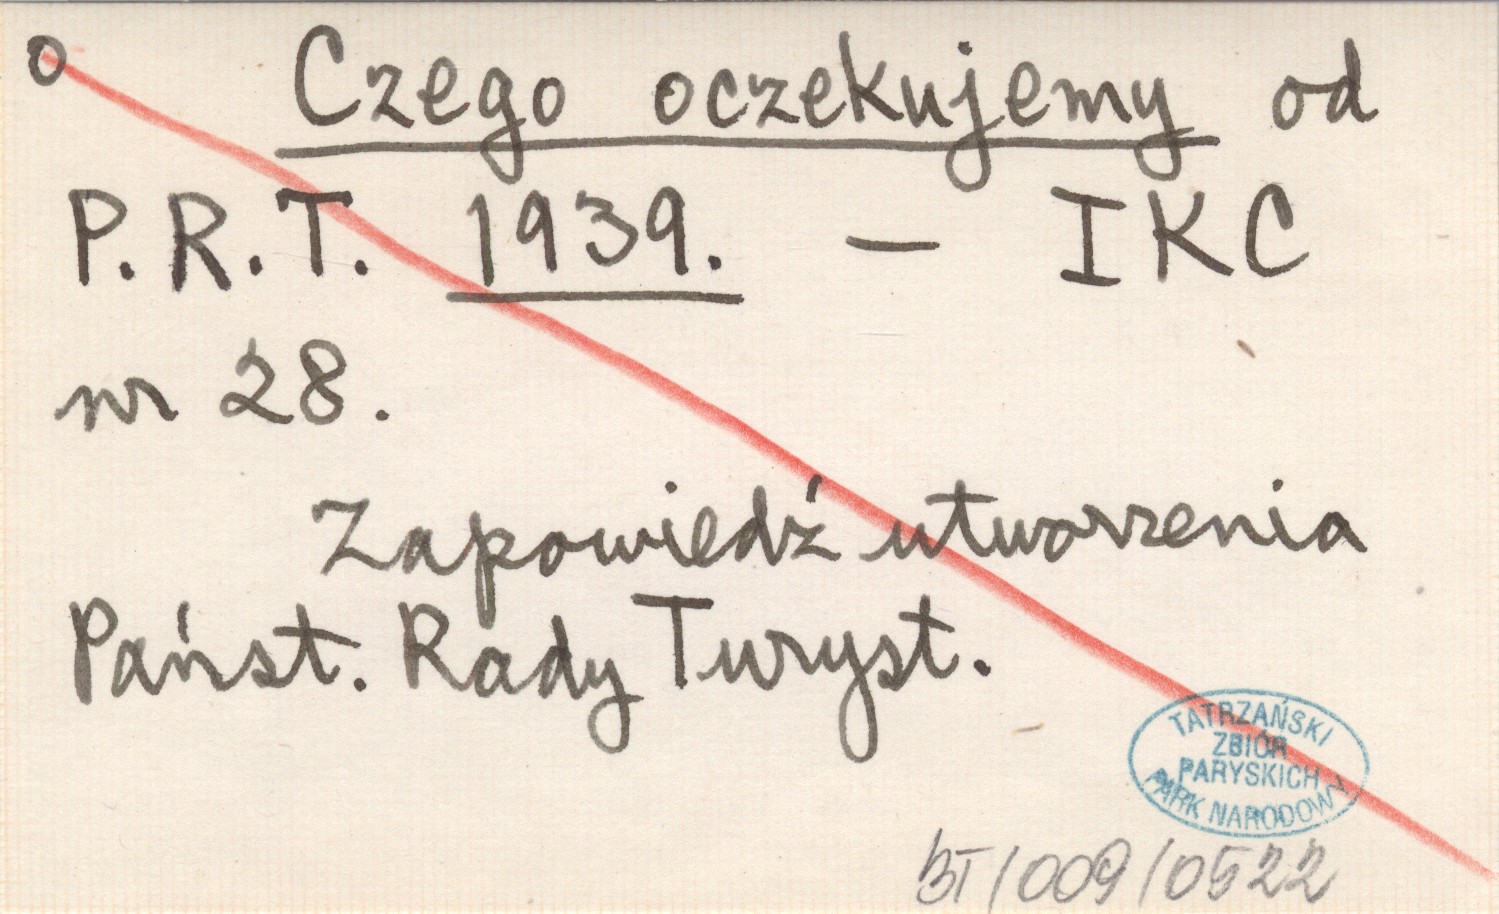 o Czego oczekujemy od
P.R.T. 1939. — IKC
nr 28.
Zapowiedź utworzenia
Państ. Rady Turyst.
TATRZAŃSKI
ZBIÓR
PARYSKICH
PARK NARODOWY
BT/009/0522